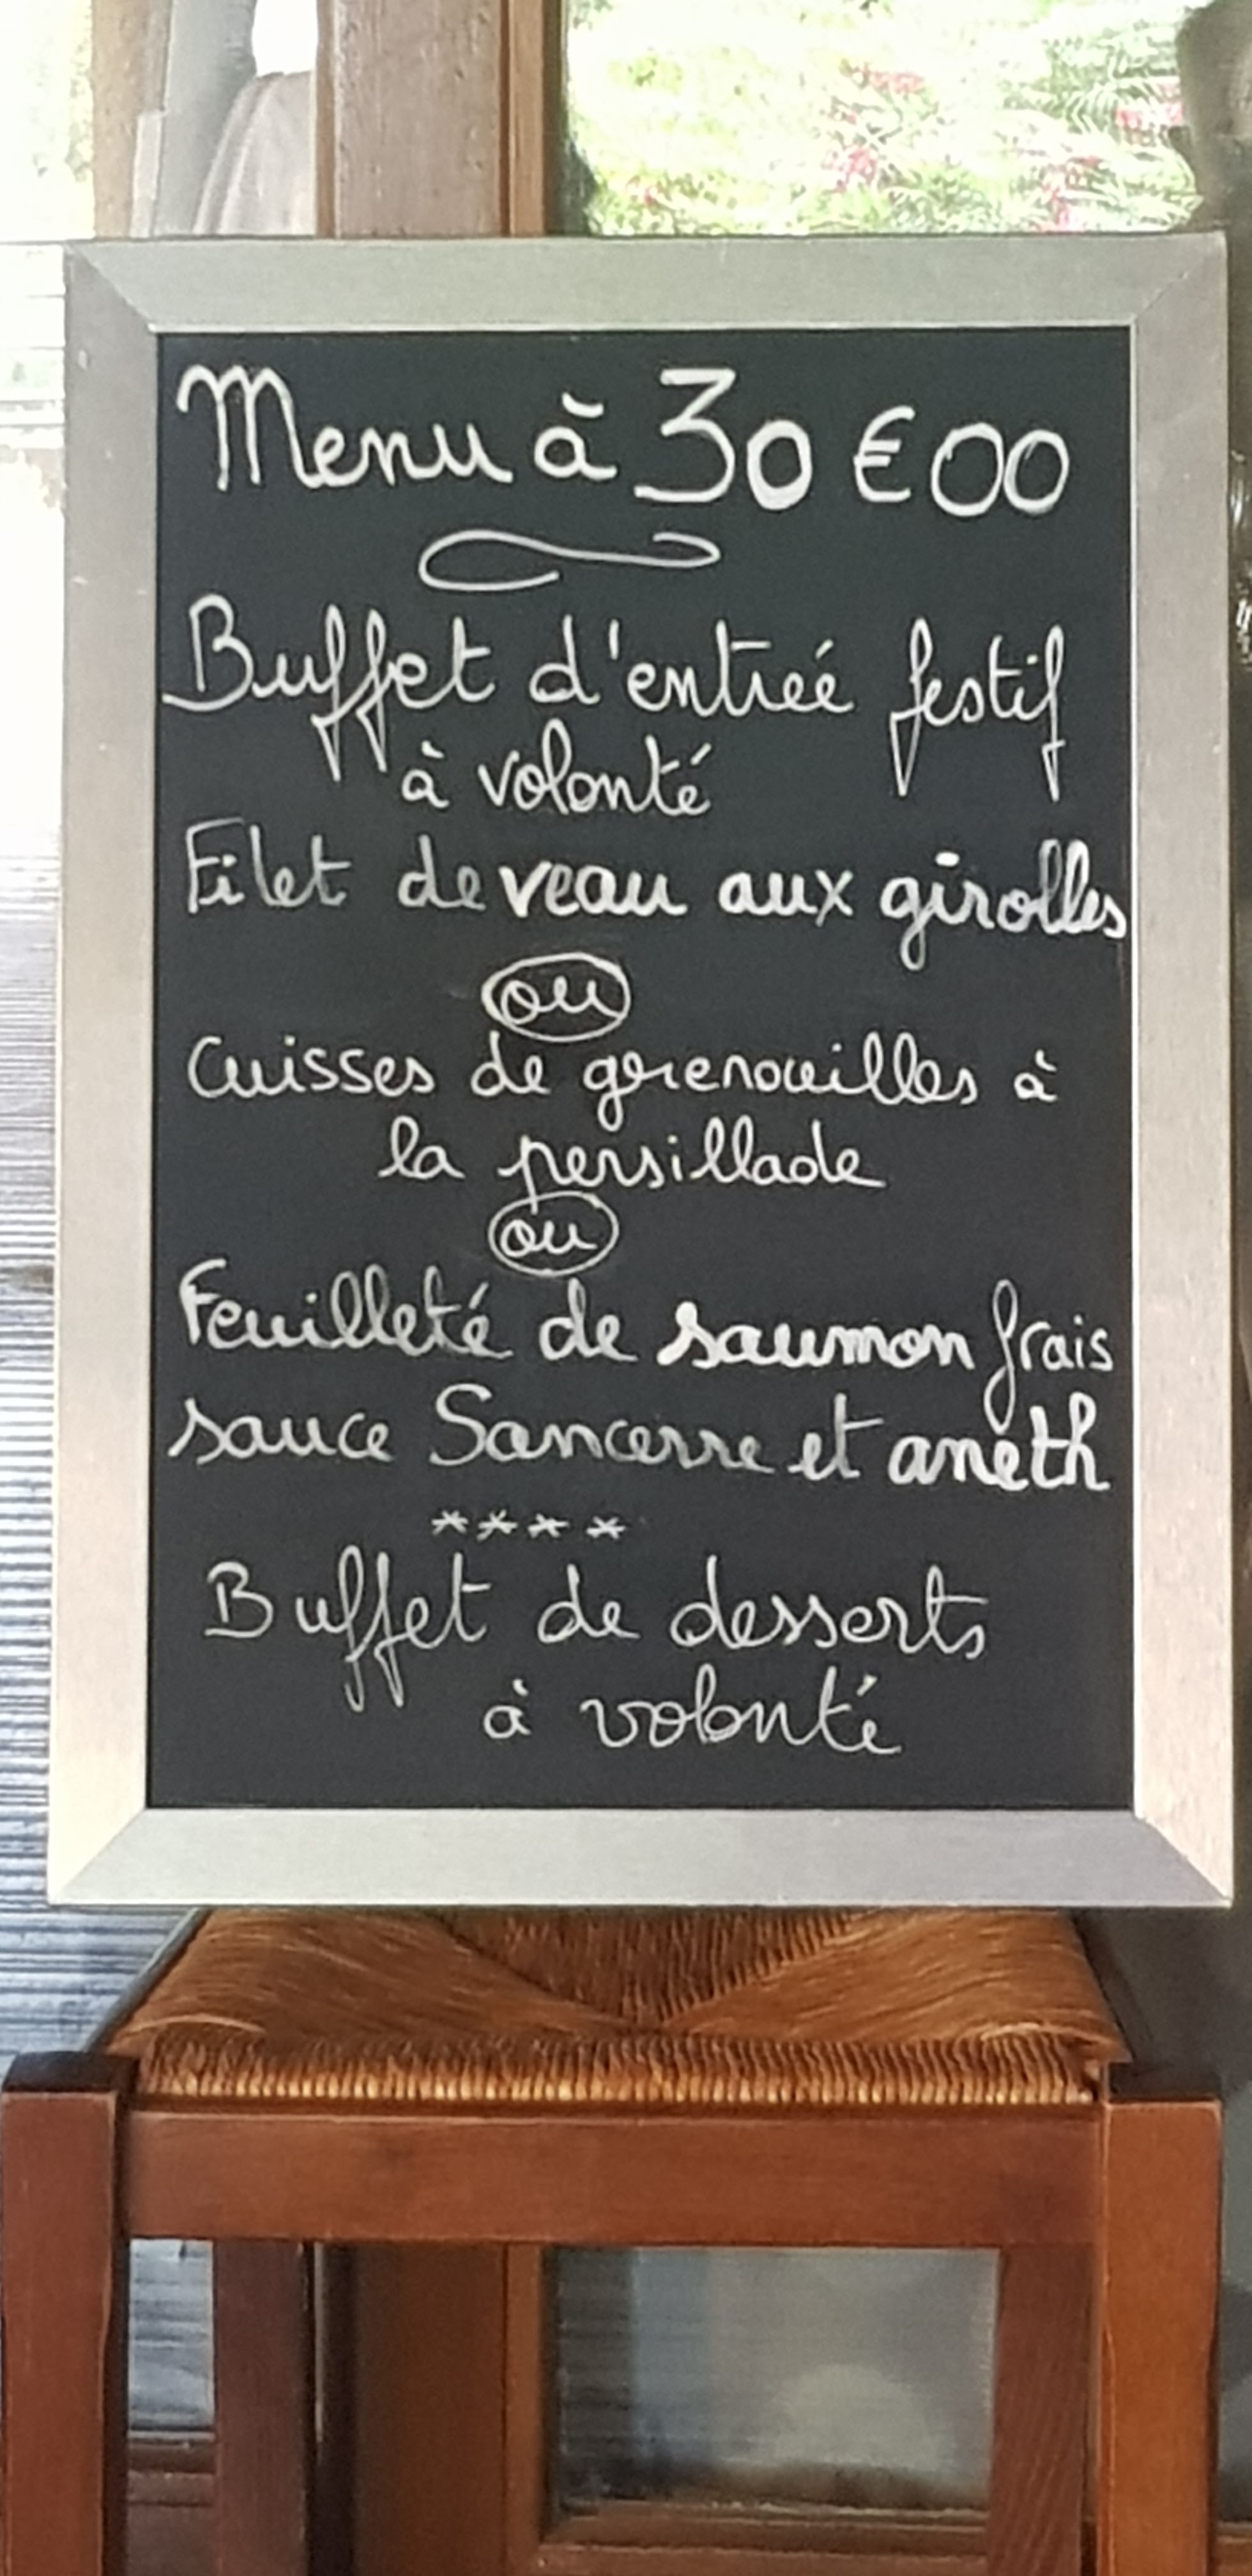 Menu à 30 €00
Buffet d'entreé festif
à volonté
Filet de veau aux girolles
ou
Cuisses de grenouilles à
la persillade
ou
Feuilleté de saumon frais
sauce Sancerre et aneth
****
Buffet de desserts
à volonté